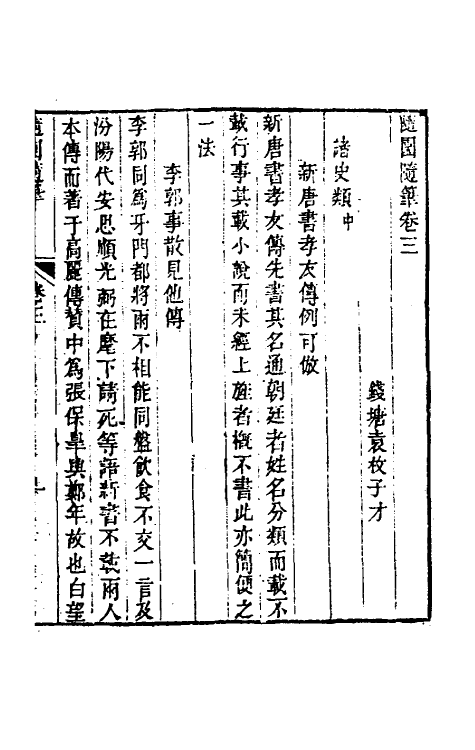 隨園隨筆卷三
錢塘袁枚子才
諸史類中
新唐書孝友傳例可倣
新唐書孝友傳先書其名通朝廷者姓名分類而載不
載行事其載小說而未經上旌者槪不書此亦簡便之
一法
李郭事散見他傳
李郭同爲牙門都將兩不相能同盤飮食不交一言及
汾陽代安思順光弼在麾下請死等語新書不裝兩人
本傳而著于高麗傳贊中爲張保皐與鄭年故也白望
隨園隨筆
卷三